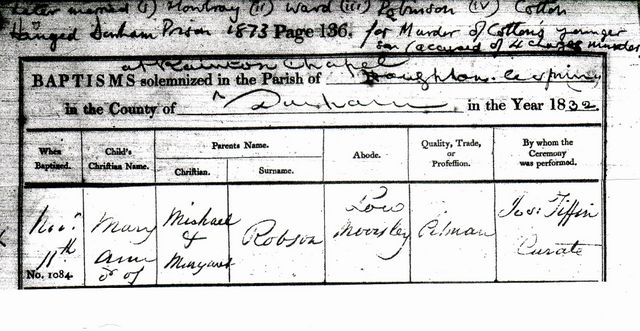 Later married (i) Mowbray (ii) Ward (iii) Robinson (iv) Cotton
Hanged Durham Prison 1873 Page 136. for Murder of Cotton's younger
son (accused of 4 charges murder)
at Rainton Chapel
BAPTISMS solemnized in the Parish of Houghton-le-Spring
in the County of Durham in the Year 1832
When Baptized.
Child's Christian Name.
Parents Name.
Christian.
Surname.
Abode.
Quality, Trade, or Profession.
By whom the Ceremony was performed.
Novr.
11th
No. 1084.
Mary
Ann
d of
Michael
&
Margaret
Robson
Low
Moorsley
Pitman
Jos: Tiffin
Curate